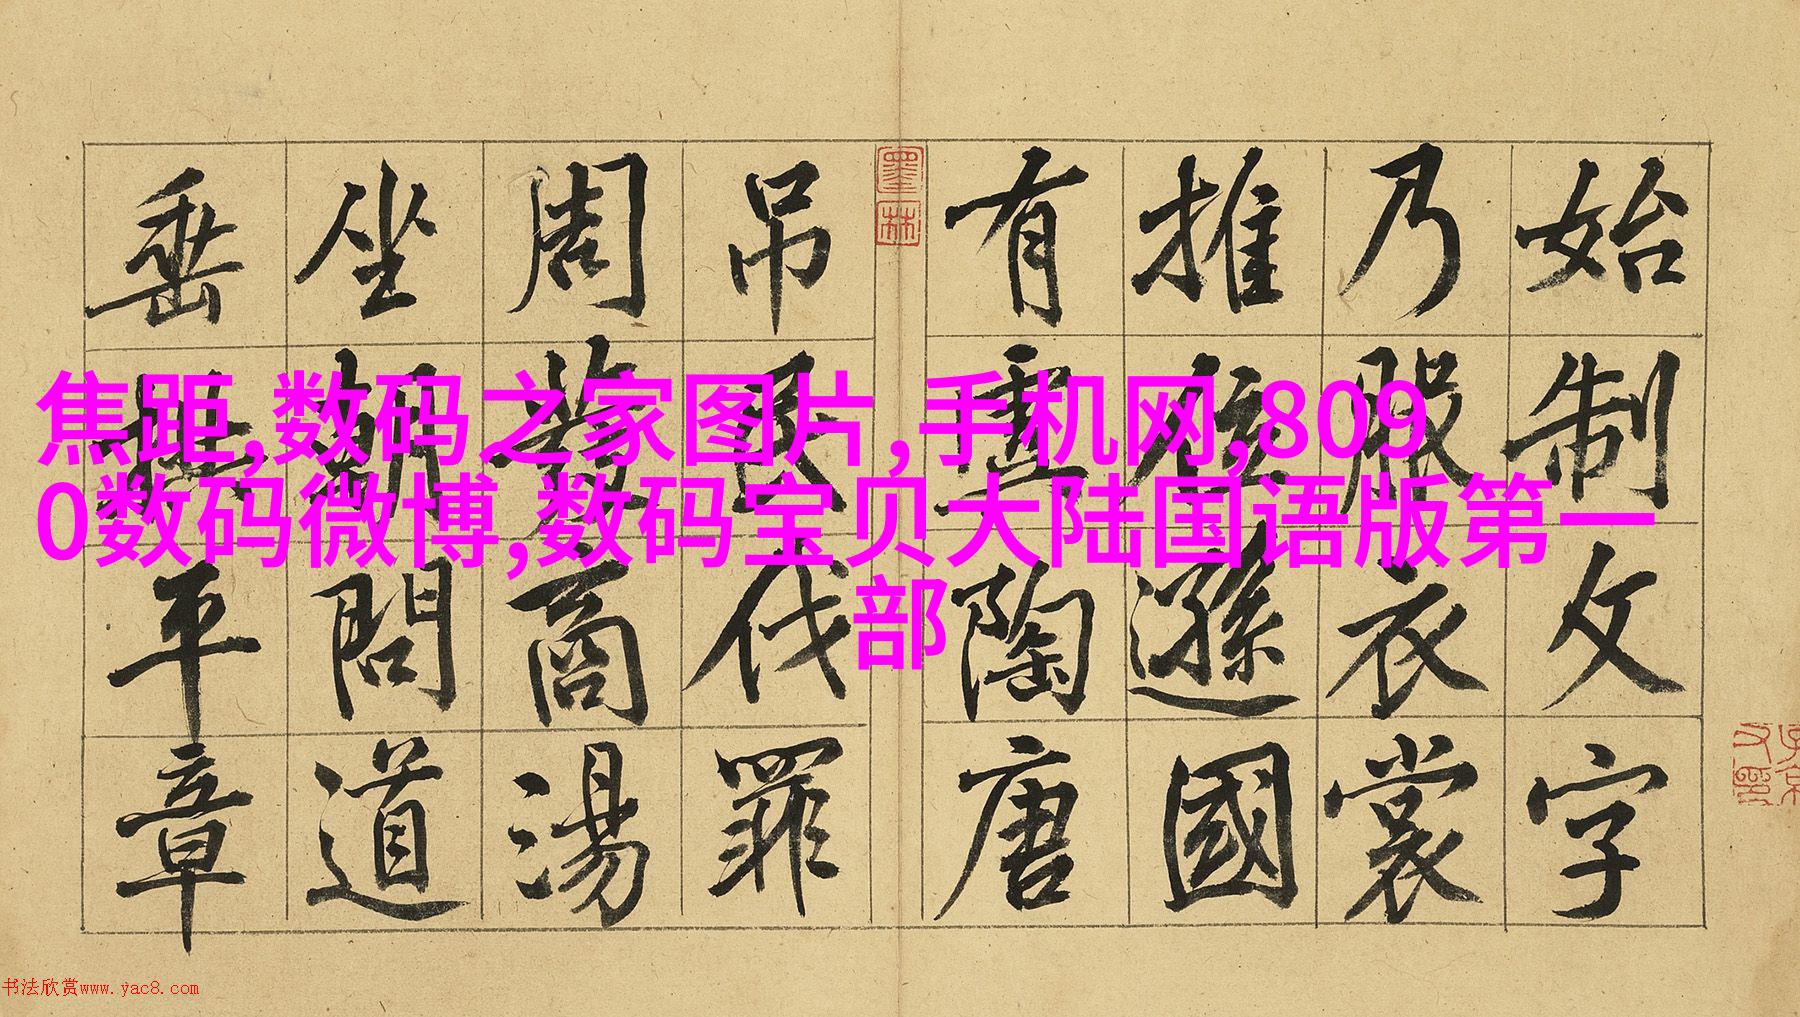 焦距,数码之家图片,手机网,809
0数码微博,数码宝贝大陆国语版第一
部
始制文字
乃服衣裳
推位遜國
有虞陶唐
吊民伐罪
周發商湯
坐朝問道
垂拱平章
墨林
书法欣赏www.yac8.com